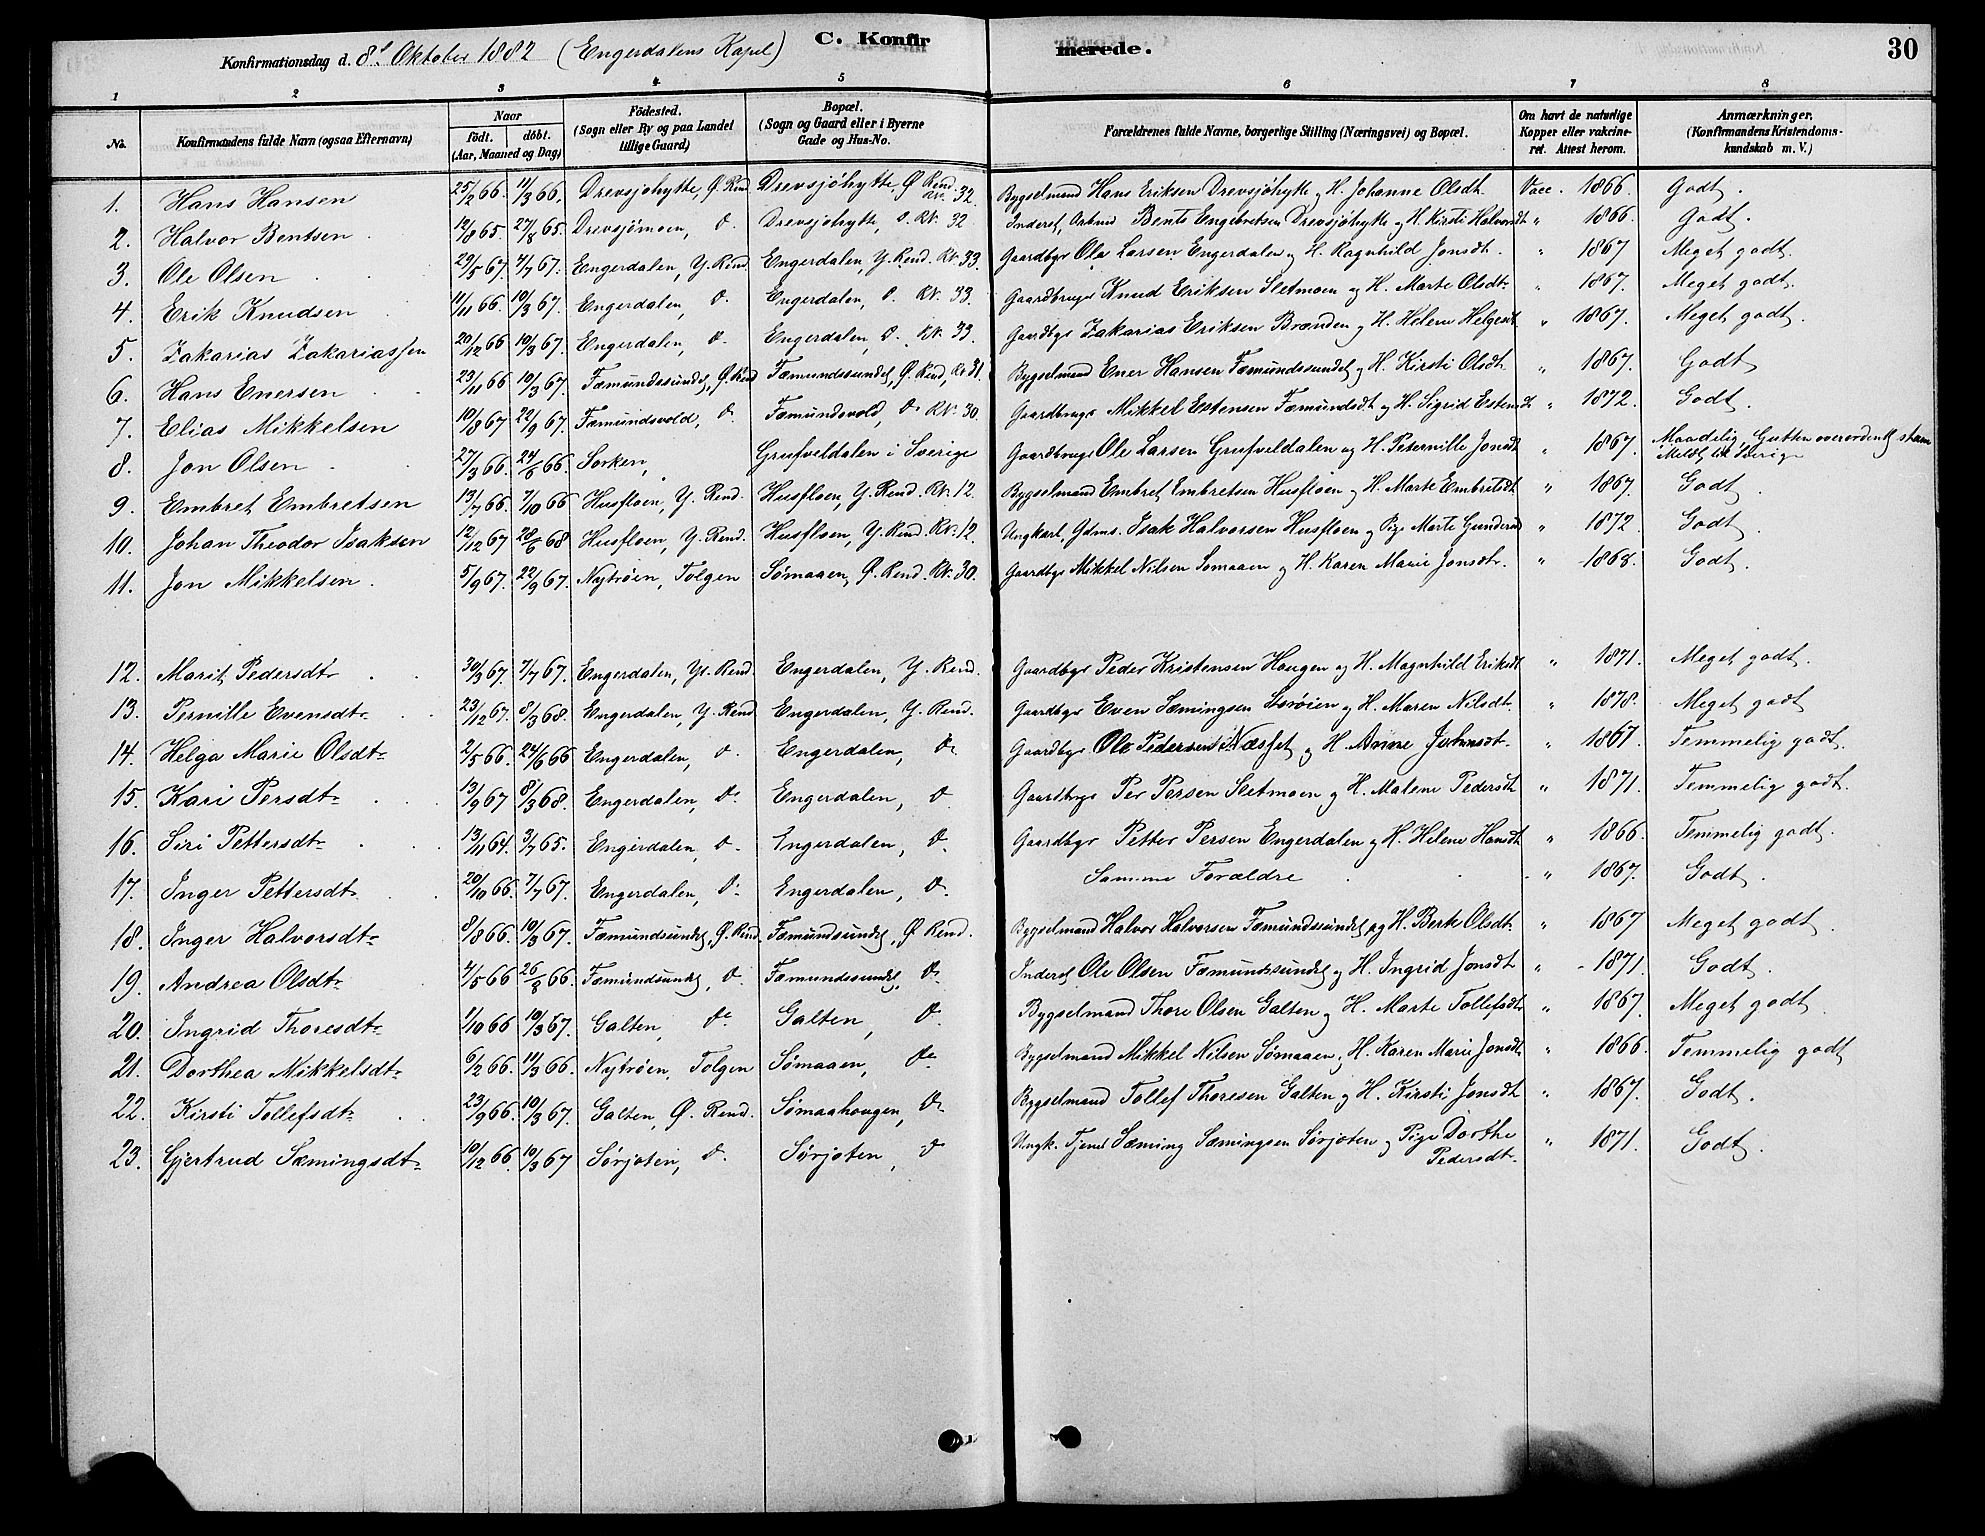 Konfirmationsdag d. 8de Oktober 1882 (Engerdalens Kapel) C. Konfir merede. 30
1 2 3 4 5 6 7 8
No. Konfirmandens fulde Navn (ogsaa Efternavn) Naar födt. döbt. (Aar, Maaned og Dag) Födested. (Sogn eller By og paa Landet tillige Gaard) Bopæl. (Sogn og Gaard eller i Byerne Gade og Hus-No. Forældrenes fulde Navne, borgerlige Stilling (Næringsvei) og Bopæl. Om havt de naturlige Kopper eller vakcineret. Attest herom. Anmærkninger. (Konfirmandens Kristendomskundskab m. V.)
1. Hans Hansen 25/2 66. 11/3 66. Drevsjöhytte, Ø. Rend. Drevsjöhytte, Ø Rend. Rk. 32. Bygselmand Hans Eriksen Drevsjöhytte og H. Johanne Olsdt. Vacc. 1866. Godt.
2. Halvor Bentsen 12/8 65. 27/8 65. Drevsjömoen, do. Drevsjöhytte, do. Rk. 32 Inderst, Arbmd Bent Engebretsen Drevsjöhytte og H. Kirsti Halvorsdt " 1866. Godt.
3. Ole Olsen 29/5 67. 7/7 67. Engerdalen, Y. Rend Engerdalen, Y. Rend. Rk. 33. Gaardbgr Ole Larsen Engerdalen og H. Ragnhild Jonsdt. " 1867 Meget godt.
4. Erik Knudsen 11/11 66. 10/3 67. Engerdalen, do. Engerdalen, do. Rk. 33. Gaardbruger Knud Eriksen Sletmoen og H. Marte Olsdtr " 1867. Meget godt.
5. Zakarias Zakariassen 20/12 66 10/3 67. Engerdalen, do. Engerdalen, do. Rk. 33. Gaardbgr Zakarias Eriksen Brænden og H. Helene Helgesdt " 1867. Meget godt.
6. Hans Enersen 23/11 66 10/3 67. Fæmundssundet, Ø. Rend Fæmundssundet, Ø. Rend, Rk 31. Bygselmand Ener Hansen Fæmundssundet og H. Kirsti Olsdt " 1867. Godt
7. Elias Mikkelsen 10/8 67 22/9 67. Fæmundsvold, do Fæmundsvold, do Rk. 30 Gaardbruger Mikkel Estensen Fæmundsvold og H. Sigrid Estensdt " 1872. Godt.
8. Jon Olsen 27/3 66. 24/6 66. Sorken, Grufveldalen i Sverige Gaardbruger Ole Larsen Grufveldalen og H. Peternille Jonsdt " 1867. Maadelig, Gutten overordentlig
Meldt til Sverige
9. Embret Embretsen 13/7 66. 7/10 66 Husfloen, Y. Rend. Husfloen, Y. Rend. Rk. 12. Bygselmand Embret Embretsen Husfloen og H. Marte Embretsdt " 1867. Godt
10. Johan Theodor Isaksen 12/12 67 28/6 68 Husfloen, Y. Rend. Husfloen, Y. Rend. Rk. 12. Ungkarl, Gdms. Isak Halvorsen Husfloen og Pige Marte Gundersd " 1872. Godt
11. Jon Mikkelsen 5/9 67. 22/9 67. Nytröen, Tolgen Sømaaen, Ø. Rend. Rk. 30. Gaardbgr Mikkel Nilsen Sømaaen og H. Karen Marie Jonsdt. " 1868. Godt.
12. Marit Pedersdtr 30/3 67. 7/7 67. Engerdalen, Y. Rend Engerdalen, Y. Rend. Gaardbgr Peder Kristensen Haugen og H. Magnhild Eriksdt " 1871. Meget godt.
13. Pernille Evensdtr 23/12 67. 8/3 68. Engerdalen, Y. Rend Engerdalen, Y. Rend. Gaardbgr Even Sæmingsen Soröien og H. Maren Nilsdt. " 1878. Meget godt
14. Helga Marie Olsdtr 2/5 66. 24/6 66 Engerdalen, do. Engerdalen, do Gaardbgr Ole Pedersen Næsset og H. Anne Johnsdt. " 1867. Temmelig godt.
15. Kari Persdtr 13/9 67 8/3 68. Engerdalen, do. Engerdalen, do Gaardbrugr Per Persen Sletmoen og H. Malene Pedersdt " 1871. Temmelig godt.
16. Siri Pettersdtr 13/11 64. 3/7 65. Engerdalen, do. Engerdalen, do. Gaardbgr Petter Persen Engerdalen og H. Helene Hansdt " 1866. Temmelig godt.
17. Inger Pettersdtr 20/10 66. 7/7 67. Engerdalen, do. Engerdalen, do. Samme Forældre " 1867. Godt.
18. Inger Halvorsdtr 8/8 66. 10/3 67. Fæmundsundet, Ø. Rend. Fæmundsundet, Ø Rend. Bygselmand Halvor Halvorsen Fæmundssundet og H. Berte Olsdt. " 1867 Meget godt.
19. Andrea Olsdtr 4/5 66 26/8 66. Fæmundsundet, do. Fæmundssundet, do Inderst Ole Olsen Fæmundssundet og H. Ingrid Jonsdt " 1871. Godt.
20. Ingrid Thoresdtr 1/10 66 10/3 67. Galten, do Galten, do. Bygselmand Thore Olsen Galten og H. Marte Tollefsdt " 1867. Meget godt.
21. Dorthea Mikkelsdtr 6/2 66. 11/3 66. Nytröen, Tolgen Sømaaen, do Bygselmand Mikkel Nilsen Sømaaen, H. Karen Marie Jonsdt " 1866. Temmelig godt
22. Kirsti Tollefsdtr 23/9 66. 10/3 67. Galten, Ø. Rend. Sømaahougen, do Bygselmand Tollef Thoresen Galten og H. Kirsti Jonsdt " 1867. Godt.
23. Gjertrud Sæmingsdtr 10/12 66. 10/3 67 Sørjoten, do. Sørjoten, do Ungk. Tjener Sæming Sæmingsen Sørjoten og Pige Dorthe " 1871. Godt.
Pedersdtr